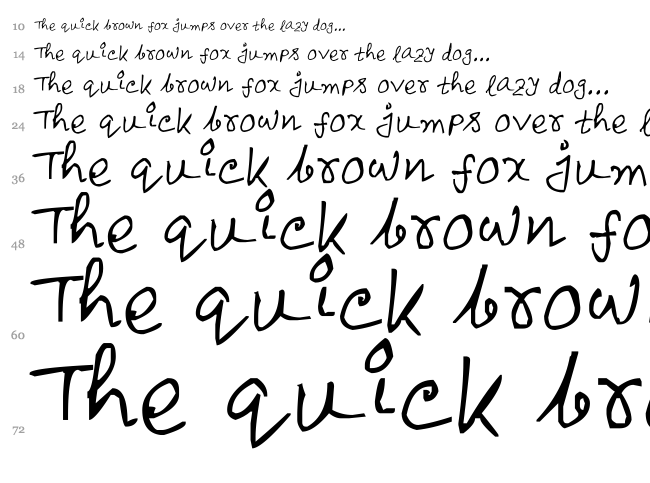 10 The quick brown fox jumps over the lazy dog...
14 The quick brown fox jumps over the lazy dog...
18 The quick brown fox jumps over the lazy dog...
24 The quick brown fox jumps over the l
36 The quick brown fox jum
48 The quick brown fo
60 The quick brow
72 The quick br